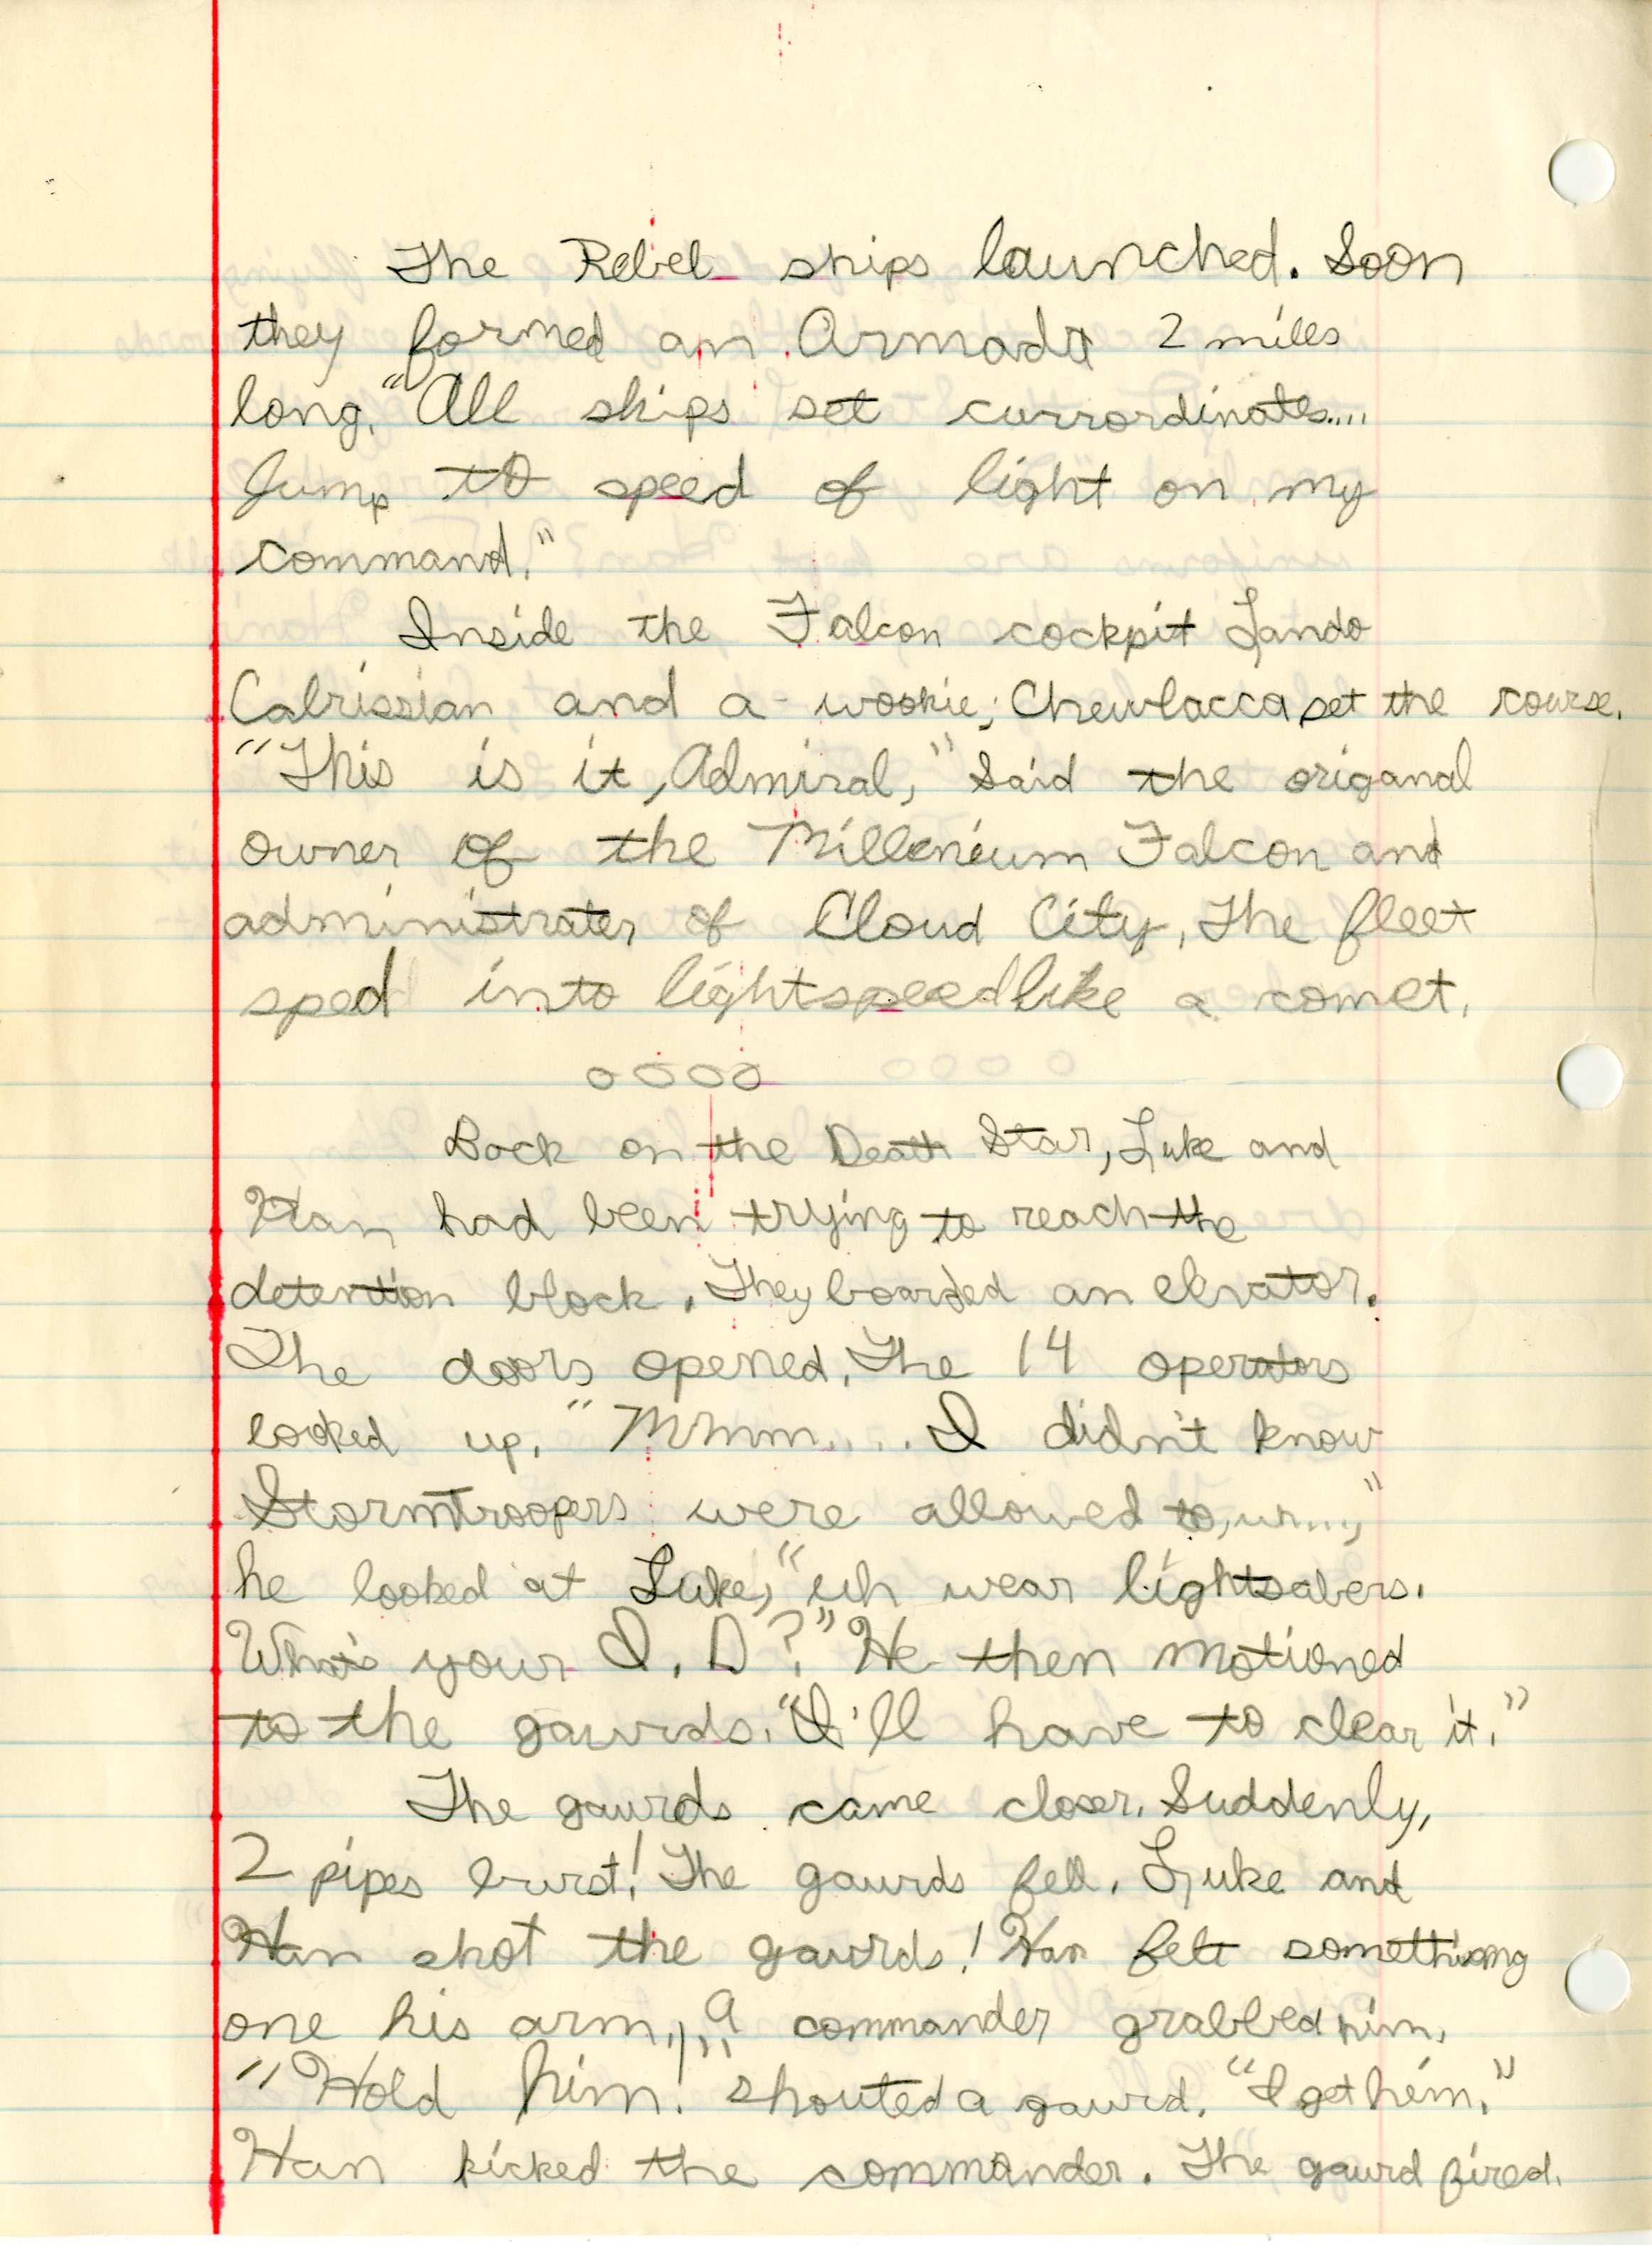 The Rebel ships launched. Soon
they formed an Armada 2 miles
long. "All ships set currordinates....
Jump to speed of light on my
command."
Inside the Falcon cockpit Lando
Calrissian and a wookie, Chewbacca set the course.
"This is it, Admiral," said the origanal
owner of the Millenium Falcon and
administrater of Cloud City. The fleet
sped into lightspeed like a comet.
oooo
Back on the Death Star, Luke and
Han had been trying to reach the
detention block. They boarded an elevator.
The doors opened. The 14 operators
looked up. "Mmmm.... I didn't know
Stormtroopers were allowed to, ur....,"
he looked at Luke, "uh wear lightsabers.
What's your I.D?" He then motioned
to the gaurds. "I'll have to clear it."
The gaurds came closer. Suddenly,
2 pipes burst! The gaurds fell. Luke and
Han shot the gaurds! Han felt something
one his arm,,,, a commander grabbed him.
"Hold him! shouted a gaurd. "I get him."
Han kicked the commander. The gaurd fired.